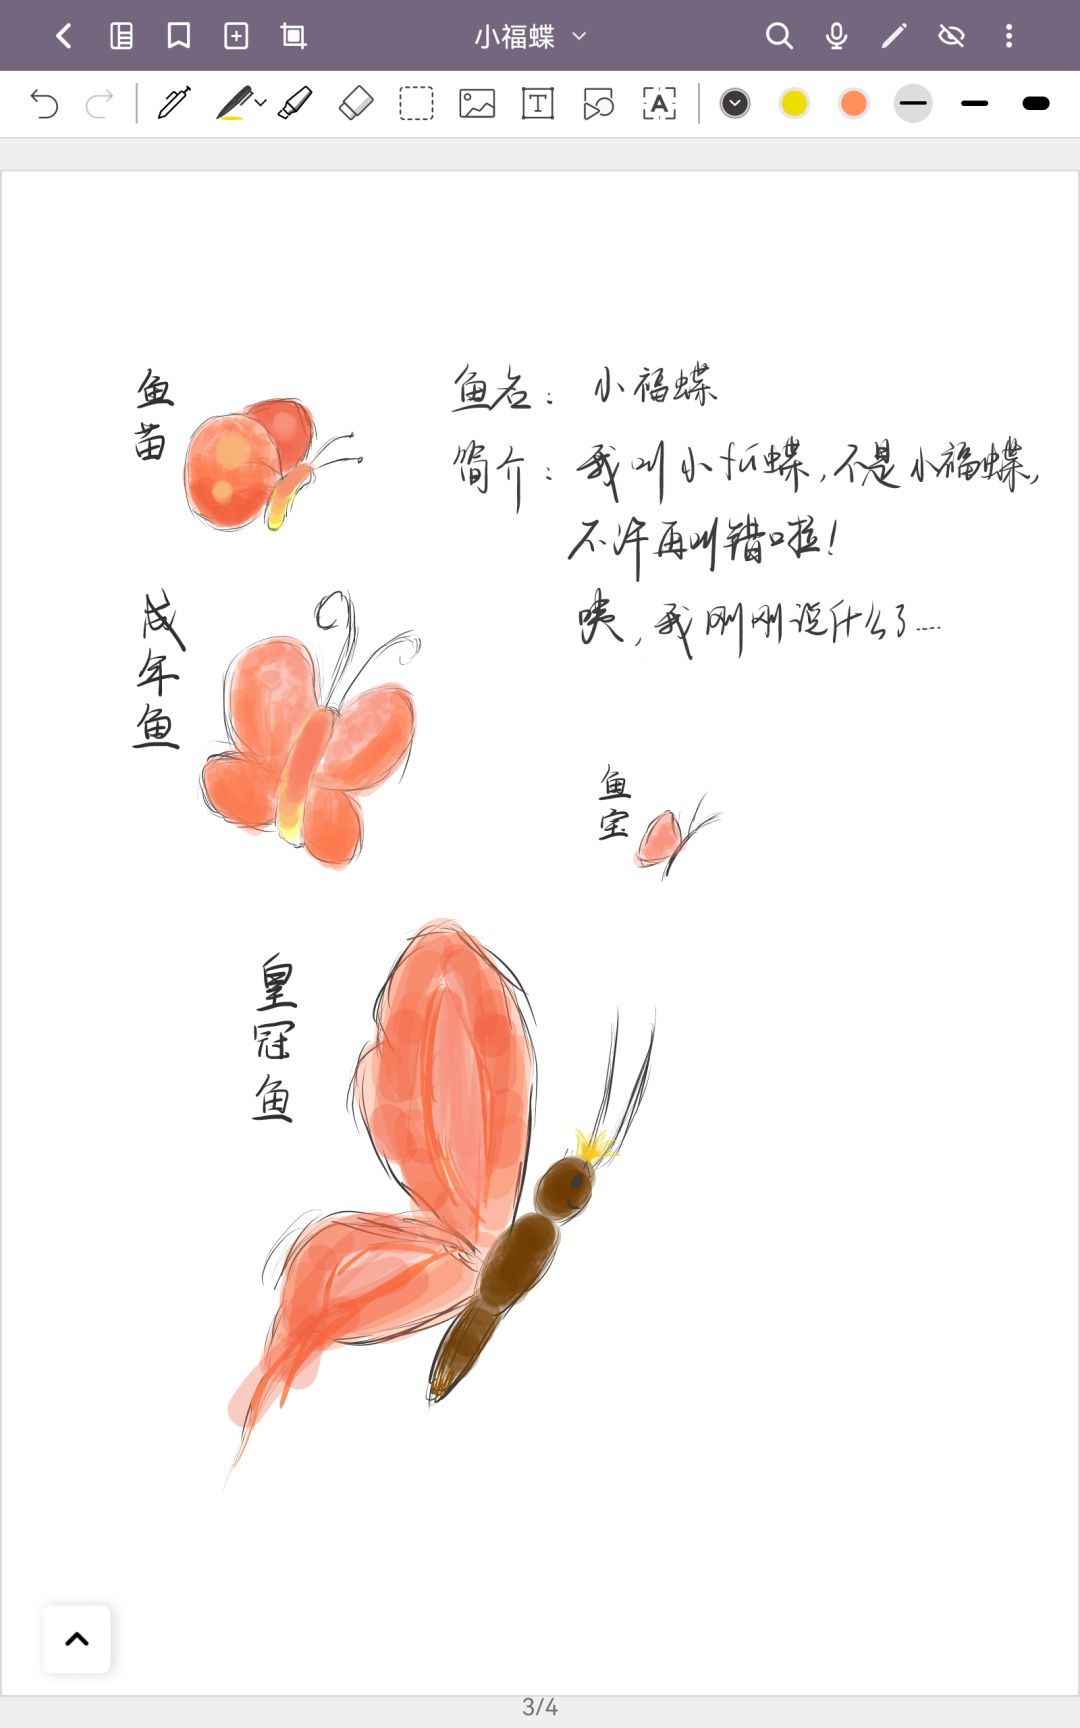 小福蝶
T
A
鱼苗
鱼名：小福蝶
简介：我叫小fú蝶，不是小福蝶，
不许再叫错啦！
咦，我刚刚说什么了……
成年鱼
鱼宝
皇冠鱼
3/4